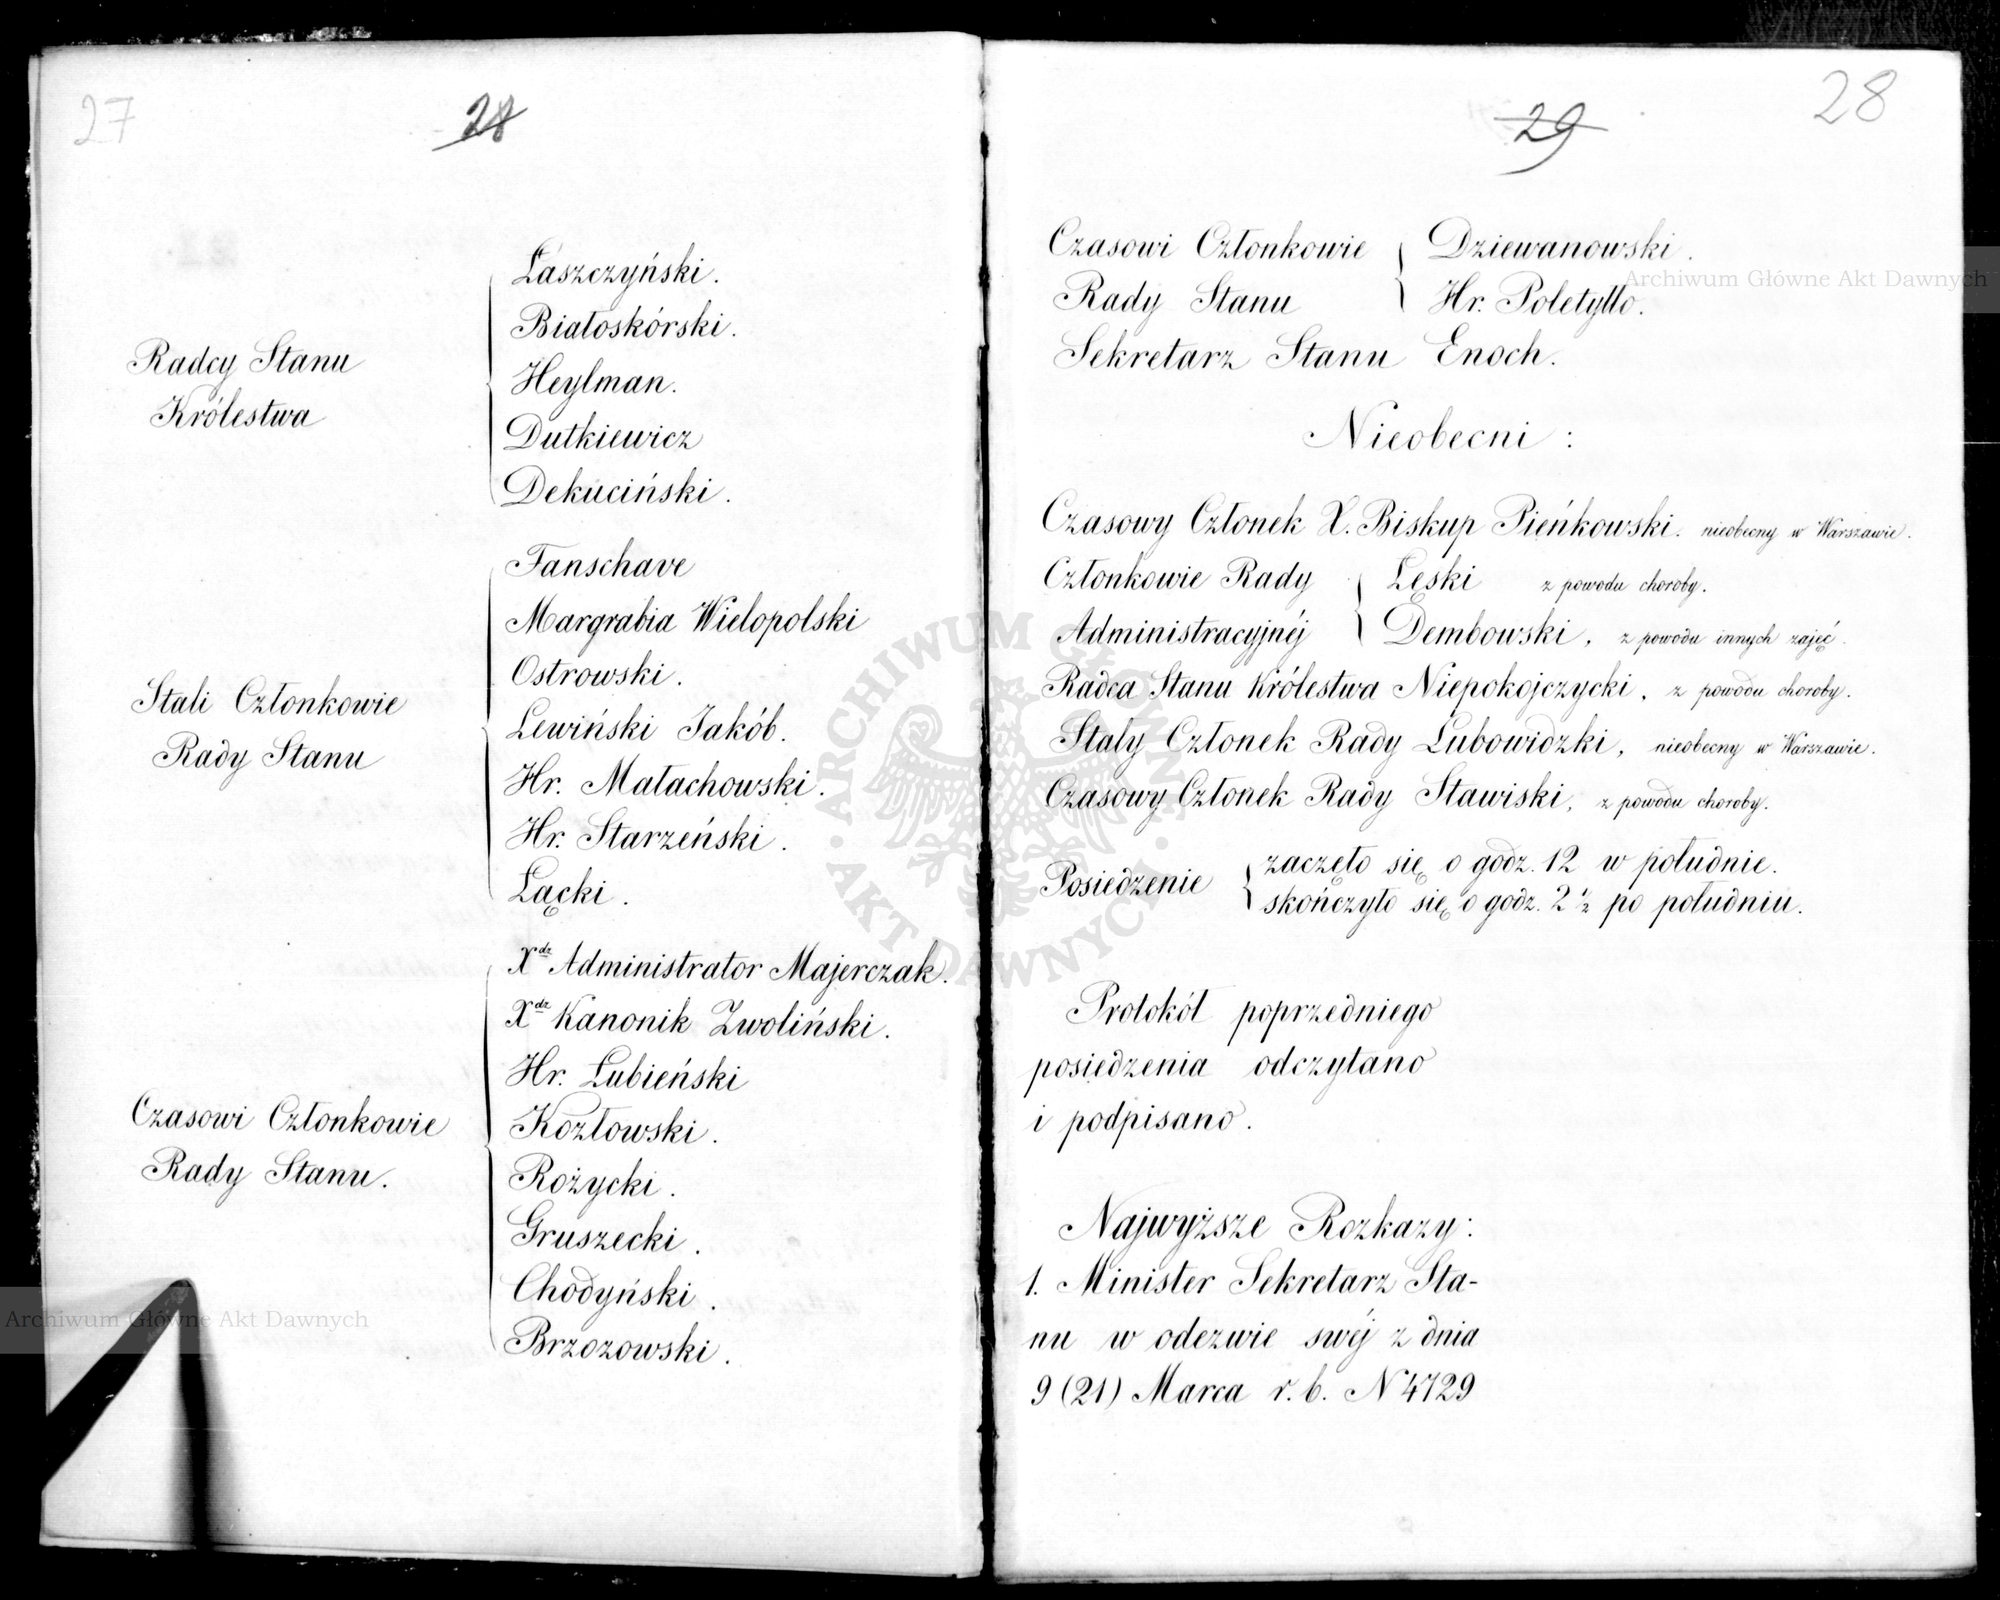 27
28
Radcy Stanu
Królestwa
Łaszczyński.
Białoskórski.
Heylman.
Dutkiewicz
Dekuciński.
Stali Członkowie
Rady Stanu
Fanschave
Margrabia Wielopolski
Ostrowski.
Lewiński Jakób.
Hr. Małachowski.
Hr. Starzeński.
Łącki.
Czasowi Członkowie
Rady Stanu.
Xdz Administrator Majerczak.
Xdz Kanonik Zwoliński.
Hr. Łubieński
Kozłowski.
Rożycki.
Gruszecki.
Chodyński.
Brzozowski.
28
29
Czasowi Członkowie
Rady Stanu
Dziewanowski.
Hr. Poletyłło.
Sekretarz Stanu Enoch.
Nieobecni:
Czasowy Członek X. Biskup Pieńkowski. nieobecny w Warszawie.
Członkowie Rady
Administracyjnéj
Łęski z powodu choroby.
Dembowski, z powodu innych zajęć.
Radca Stanu Królestwa Niepokojczycki, z powodu choroby.
Stały Członek Rady Łubowidzki, nieobecny w Warszawie.
Czasowy Członek Rady Stawiski, z powodu choroby.
Posiedzenie
zaczęło się o godz. 12 w południe.
skończyło się o godz. 2 ½ po południu.
Protokół poprzedniego
posiedzenia odczytano
i podpisano.
Najwyższe Rozkazy:
1. Minister Sekretarz Sta-
nu w odezwie swéj z dnia
9 (21) Marca r. b. N 4729
Archiwum Główne Akt Dawnych
Archiwum Główne Akt Dawnych
ARCHIWUM GŁÓWNE
AKT DAWNYCH